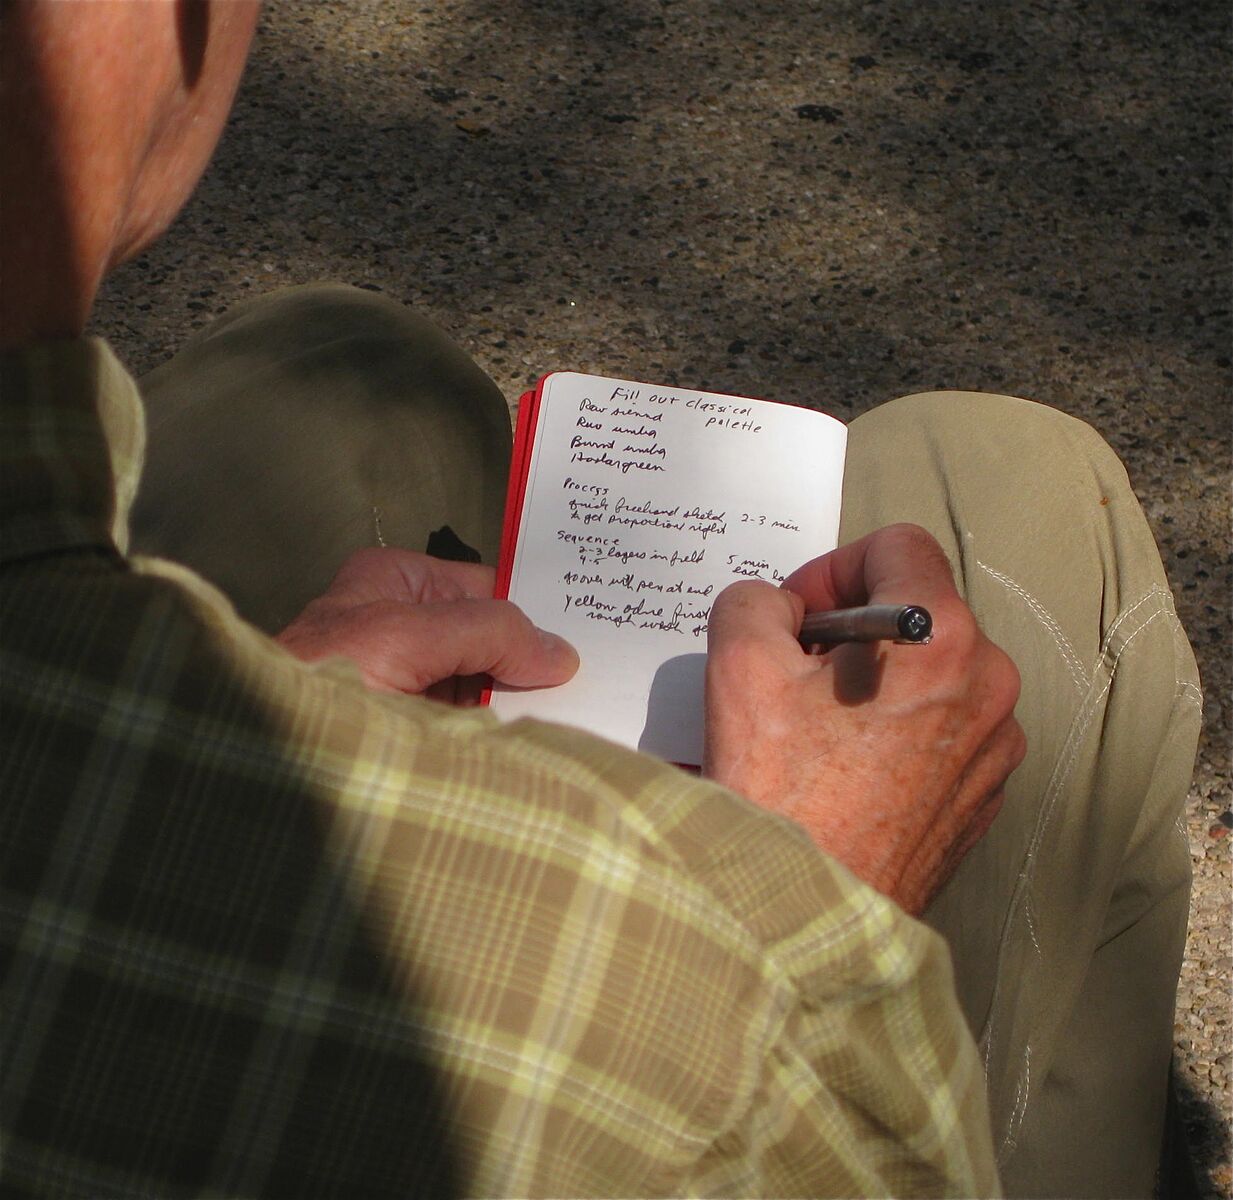 Fill out classical
palette
Raw sienna
Raw umber
Burnt umber
Hookergreen
Process
quick freehand sketch 2-3 min
to get proportion right
Sequence
2-3 layers in field 5 min
4-5 each la
go over with pen at end
yellow ochre first
rough wash ge
08